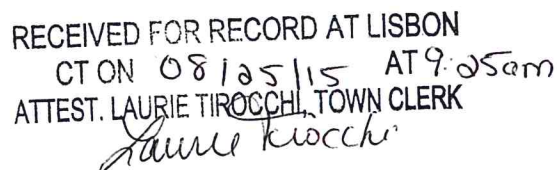 RECEIVED FOR RECORD AT LISBON
CT ON 08/25/15 AT 9:25am
ATTEST. LAURIE TIROCCHI, TOWN CLERK
Laurie Tirocchi